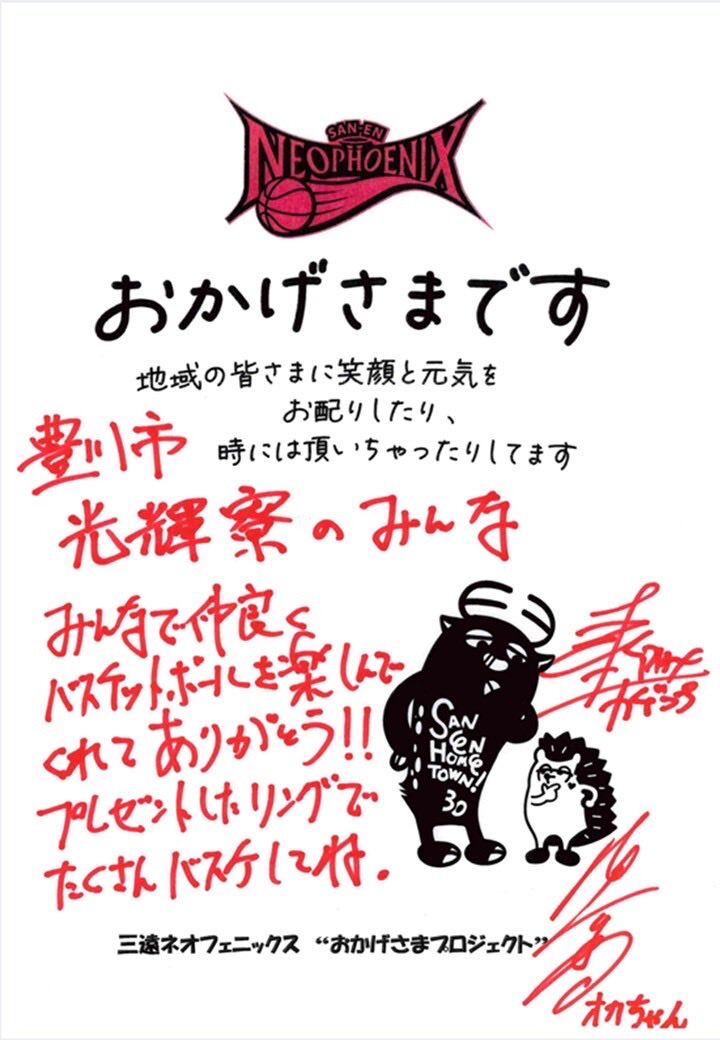 SAN-EN
NEOPHOENIX
おかげさまです
地域の皆さまに笑顔と元気を
お配りしたり、
時には頂いちゃったりしてます
豊川市
光輝寮のみんな
みんなで仲良く
バスケットボールを楽しんで
くれてありがとう!!
プレゼントしたリングで
たくさんバスケしてね。
SAN
EN
HOME
TOWN!
30
三遠ネオフェニックス “おかげさまプロジェクト”
オカちゃん